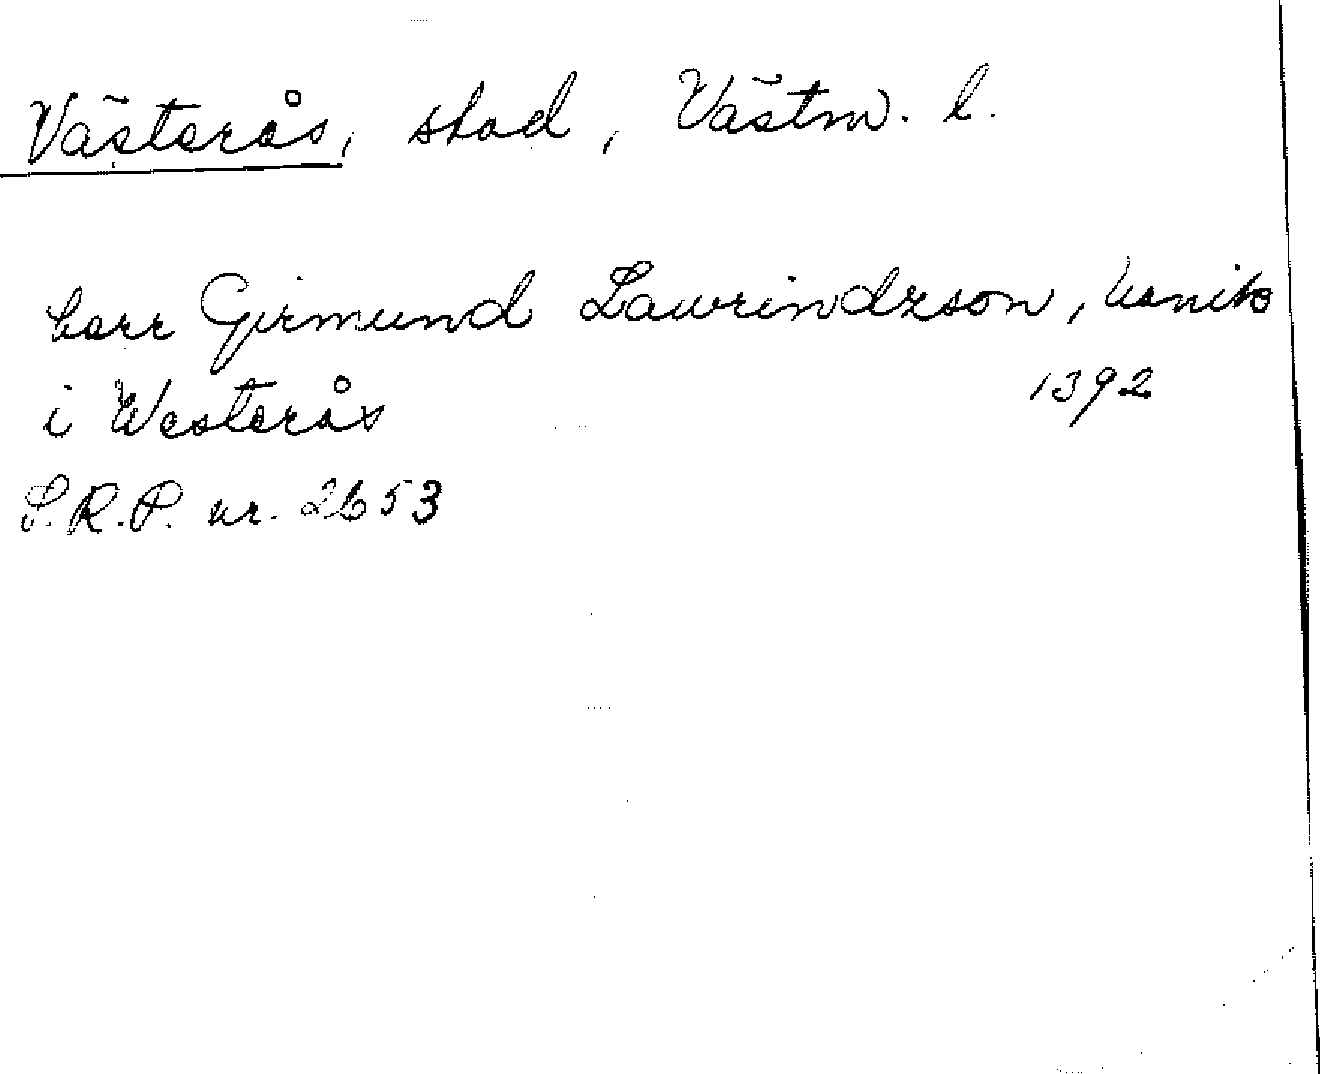 Västerås, stad, Västm. l.
herr Girmund Lawrindzson, kanik
i Westerås 1392
S.R.P. nr. 2653